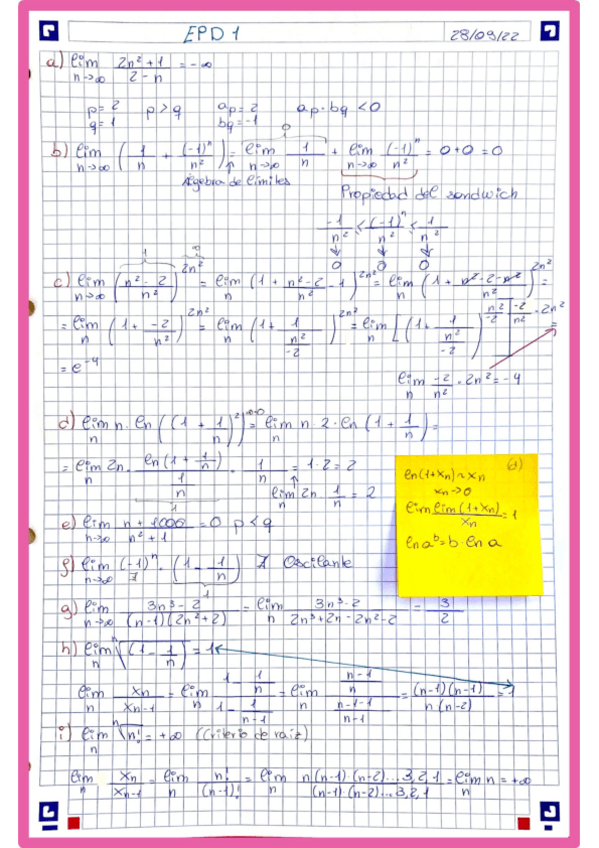 EPD 1 28/09/22
a) lim n→∞ (2n²+1)/(2-n) = -∞
p=2 p>q ap=2 ap·bq<0
q=1 bq=-1
b) lim n→∞ (1/n + (-1)ⁿ/n²) = lim n→∞ 1/n + lim n→∞ (-1)ⁿ/n² = 0+0=0
0
Álgebra de límites
Propiedad del sandwich
-1/n² < (-1)ⁿ/n² < 1/n²
0 0 0
1 ∞
c) lim n→∞ ((n²-2)/n²)^2n² = lim n (1 + (n²-2)/n² - 1)^2n² = lim n (1 + (n²-2-n²)/n²)^2n² =
= lim n (1 + -2/n²)^2n² = lim n (1 + 1/(n²/-2))^2n² = lim n [(1 + 1/(n²/-2))^(n²/-2)]^(-2/n² · 2n²) =
= e⁻⁴
lim n -2/n² · 2n² = -4
d) lim n n · ln((1 + 1/n)²) = lim n n · 2 · ln(1 + 1/n) =
= lim n 2n · ln(1 + 1/n)/(1/n) · 1/n = 1·2=2
1
lim n 2n · 1/n = 2
(d)
ln(1+xn)≈xn
xn→0
lim lim(1+xn)/xn = 1
ln aᵇ=b·ln a
e) lim n→∞ (n+1000)/(n²+1) = 0 p<q
f) lim n→∞ (-1)ⁿ · (1 - 1/n) ∄ Oscilante
∄ 1
g) lim n→∞ (3n³-2)/((n-1)(2n²+2)) = lim n (3n³-2)/(2n³+2n-2n²-2) = 3/2
h) lim n ⁿ√(1 - 1/n) = 1
lim n xn/xn-1 = lim n (1 - 1/n)/(1 - 1/(n-1)) = lim n ((n-1)/n)/((n-1-1)/(n-1)) = (n-1)(n-1)/(n(n-2)) = 1
i) lim n ⁿ√n! = +∞ (Criterio de raíz)
lim n xn/xn-1 = lim n n!/(n-1)! = lim n n(n-1)(n-2)...3,2,1/(n-1)(n-2)...3,2,1 = lim n n = +∞